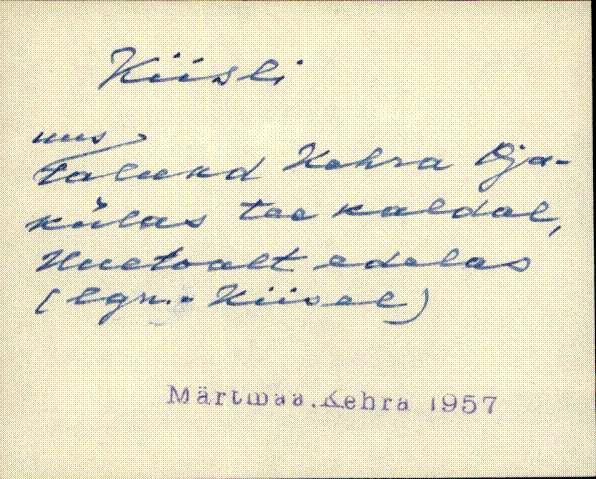 Kiisli
uus
talund Kehra Oja-
külas tee kaldal,
Uuetoalt edelas
(lgn.- Kiisel)
Märtmaa.Kehra 1957